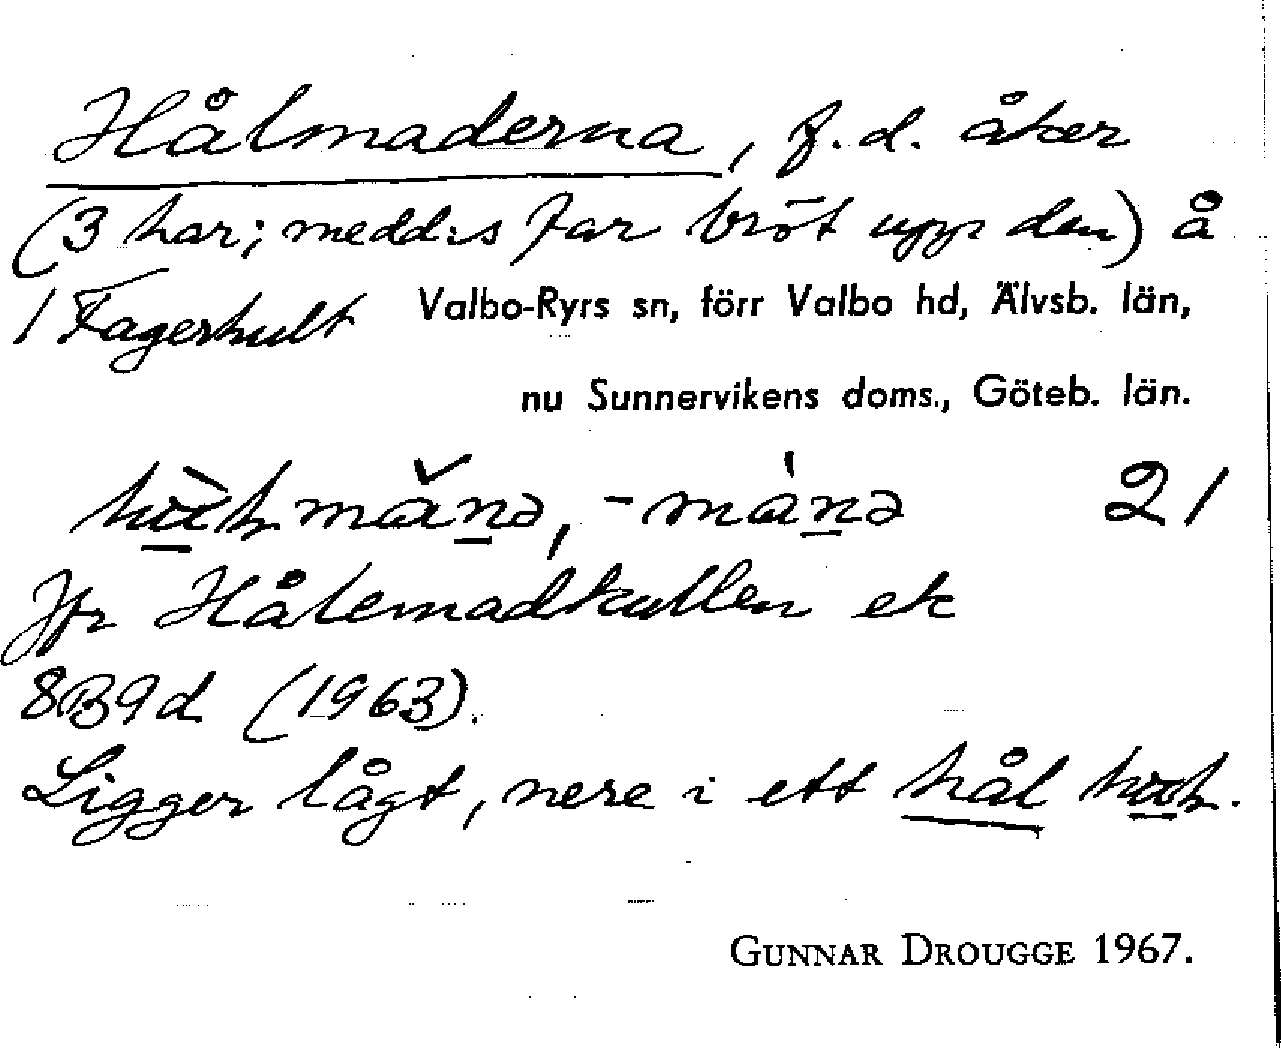 Hålmaderna, f.d. åker
(3 har; medd:s far bröt upp den) å
1 Fagerhult Valbo-Ryrs sn, förr Valbo hd, Älvsb. län,
nu Sunnervikens doms., Göteb. län.
21
Jfr Hålemadkullen ek
8B9d (1963).
Ligger lågt, nere i ett hål
GUNNAR DROUGGE 1967.